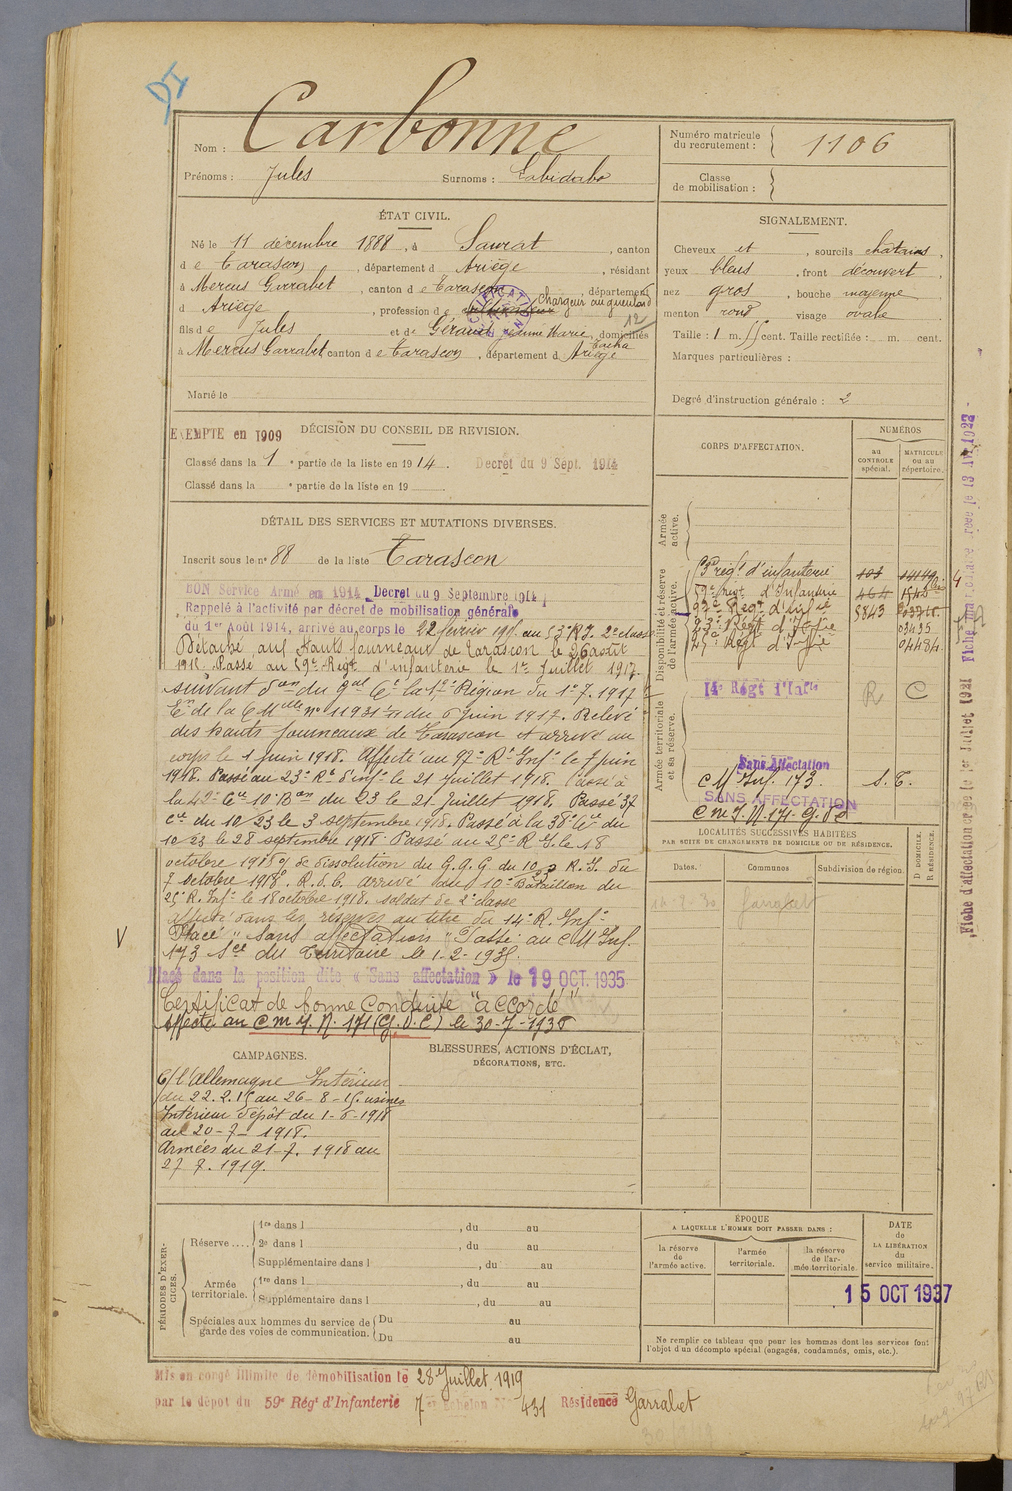 Nom : Carbonne
Prénoms : Jules Surnoms :
Numéro matricule du recrutement : 1106
Classe de mobilisation :
ÉTAT CIVIL.
Né le 11 décembre 1888, à Saurat, canton
de Tarascon, département d Ariège, résidant
à Mercus Garrabet, canton de Tarascon, département
d Ariège, profession de chargeur au gueulard
12
fils de Jules et de Géraud Jeanne Marie, domiciliés
à Mercus Garrabet canton de Tarascon, département d Ariège
Marié le
SIGNALEMENT.
Cheveux et, sourcils chatains,
yeux bleus, front découvert,
nez gros, bouche moyenne
menton rond visage ovale
Taille : 1 m. 55 cent. Taille rectifiée : m. cent.
Marques particulières :
Degré d'instruction générale : 2
EXEMPTÉ en 1909 DÉCISION DU CONSEIL DE REVISION.
Classé dans la 1e partie de la liste en 1914. Decret du 9 Sept. 1914
Classé dans la e partie de la liste en 19
DÉTAIL DES SERVICES ET MUTATIONS DIVERSES.
Inscrit sous le n° 88 de la liste Tarascon
BON Service Armé en 1914 Decret du 9 Septembre 1914
Rappelé à l'activité par décret de mobilisation générale
du 1er Août 1914, arrivé au corps le 22 février 1915 au 53e R.I. 2e classe
Détaché aux Hauts fourneaux de Tarascon le 26 août
1915. Passé au 59e Régt d'infanterie le 1er Juillet 1917
suivant don du gal Ct la 17e Région du 1.7.1917
En de la C Mlle n° 11931 du 6 juin 1917. Relevé
des hauts fourneaux de Tarascon et arrivé au
corps le 1 juin 1918. Affecté au 97e Rt Infie le 7 juin
1918. Passé au 23e Rt d'infie le 21 juillet 1918. Passé à
la 42e Cie 10e Bon du 23 le 21 Juillet 1918. Passé 37
Cie du 10/23 le 3 septembre 1918. Passé à la 38e Cie du
10/23 le 28 septembre 1918. Passé au 25e R.I. le 18
octobre 1918 de dissolution du G.A.G du 10 R.I. du
7 octobre 1918. R.d.C. arrivé au 10e Bataillon du
25e R. Infie le 18 octobre 1918. soldat de 2e classe
Affecté dans les réserves au titre du 14e R. Infie
Placé "Sans affectation" Passé au C M Inf.
173 Sce du Territoire le 1-2-1935.
Placé dans la position dite « Sans affectation » le 19 OCT. 1935
Certificat de bonne conduite "accordé"
Affecté au C m I. N. 171 (G.V.C) le 30-7-1936
CORPS D'AFFECTATION.
NUMÉROS
au CONTROLE spécial.
MATRICULE ou au répertoire.
Armée active.
Disponibilité et réserve de l'armée active.
53e régt d'infanterie
59e régt d'Infanterie 464
97e Régt d'Infie 5843
23e Régt d'Infie 03495
25e Régt d'Infie 04484
Armée territoriale et sa réserve.
14e Régt d'Infie R C
Sans Affectation
C M Inf. 173 S.T.
SANS AFFECTATION
C m I. N. 171 G.V.C
LOCALITÉS SUCCESSIVES HABITÉES
PAR SUITE DE CHANGEMENTS DE DOMICILE OU DE RÉSIDENCE.
Dates. Communes Subdivision de région. D DOMICILE. R RÉSIDENCE.
Fiche d'affectation créée le 1er Juillet 1921
CAMPAGNES.
C/ l'Allemagne Intérieur
du 22.2.15 au 26-8-15 usines
Intérieur dépôt du 1-6-1918
au 20-7-1918.
Armées du 21-7.1918 au
27 7.1919.
BLESSURES, ACTIONS D'ÉCLAT,
DÉCORATIONS, ETC.
PÉRIODES D'EXERCICES.
Réserve....
1re dans l , du au
2e dans l , du au
Supplémentaire dans l , du au
Armée territoriale.
1re dans l , du au
Supplémentaire dans l , du au
Spéciales aux hommes du service de garde des voies de communication.
Du au
Du au
ÉPOQUE
A LAQUELLE L'HOMME DOIT PASSER DANS :
la réserve de l'armée active.
l'armée territoriale.
la réserve de l'armée territoriale.
DATE de LA LIBÉRATION du service militaire.
15 OCT 1937
Ne remplir ce tableau que pour les hommes dont les services font
l'objet d'un décompte spécial (engagés, condamnés, omis, etc.).
Mis en congé illimité de démobilisation le 28 Juillet 1919
par le dépôt du 59e Régt d'Infanterie 7e échelon N° 431 Résidence Garrabet